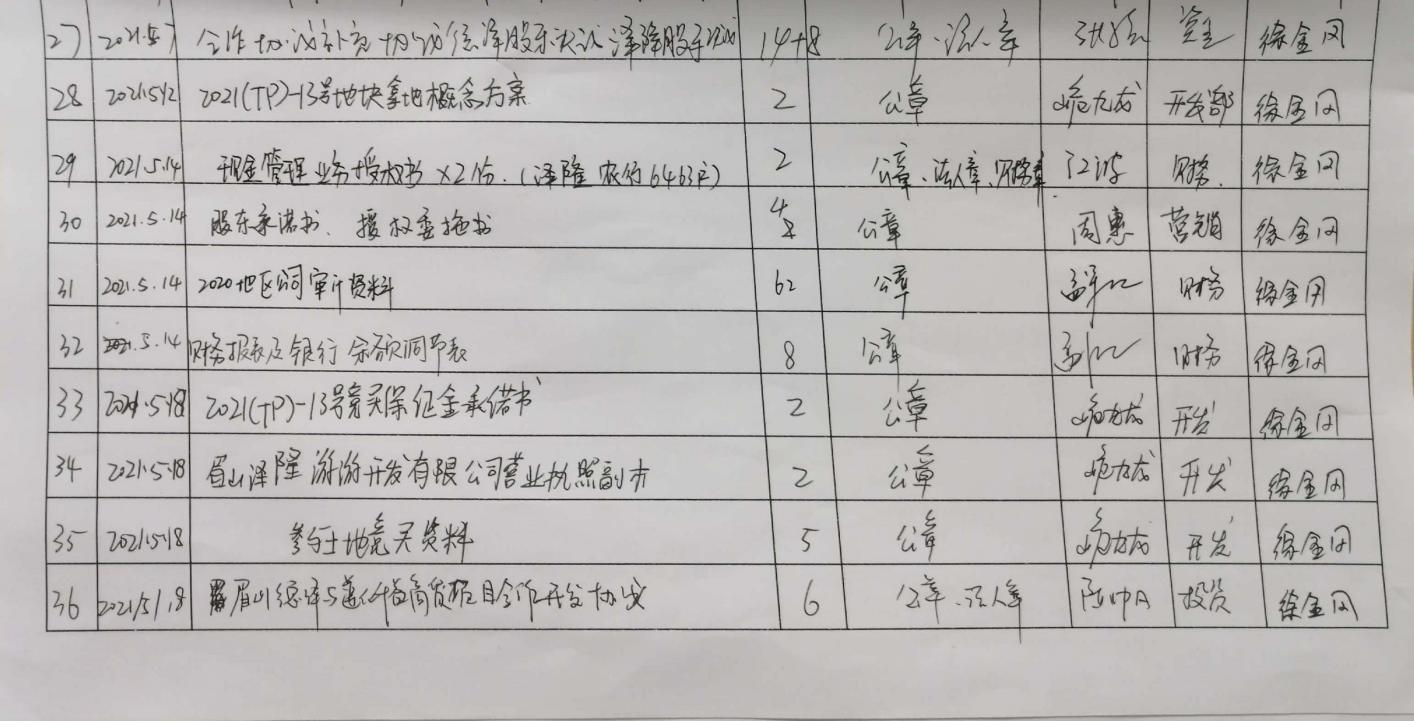 27 2021.5.7 合作协议补充协议 泽股东决议 泽隆股东决议 14+8 公章、法人章 徐金网
28 2021.5.12 2021(TP)-13号地块拿地概念方案 2 公章 开发部 徐金网
29 2021.5.14 现金管理业务授权书×2份.(泽隆 农行6463户) 2 公章、法人章、财务章 江波 财务. 徐金网
30 2021.5.14 股东承诺书、授权委托书 4 公章 周惠 营销 徐金网
31 2021.5.14 2020地区公司审计资料 62 公章 财务 徐金网
32 2021.5.14 财务报表及银行余额调节表 8 公章 财务 徐金网
33 2021.5.18 2021(TP)-13号竞买保证金承诺书 2 公章 开发 徐金网
34 2021.5.18 眉山泽隆游开发有限公司营业执照副本 2 公章 开发 徐金网
35 2021.5.18 参与土地竞买资料 5 公章 开发 徐金网
36 2021/5/18 眉山 泽与 项目合作开发协议 6 公章、法人章 投资 徐金网